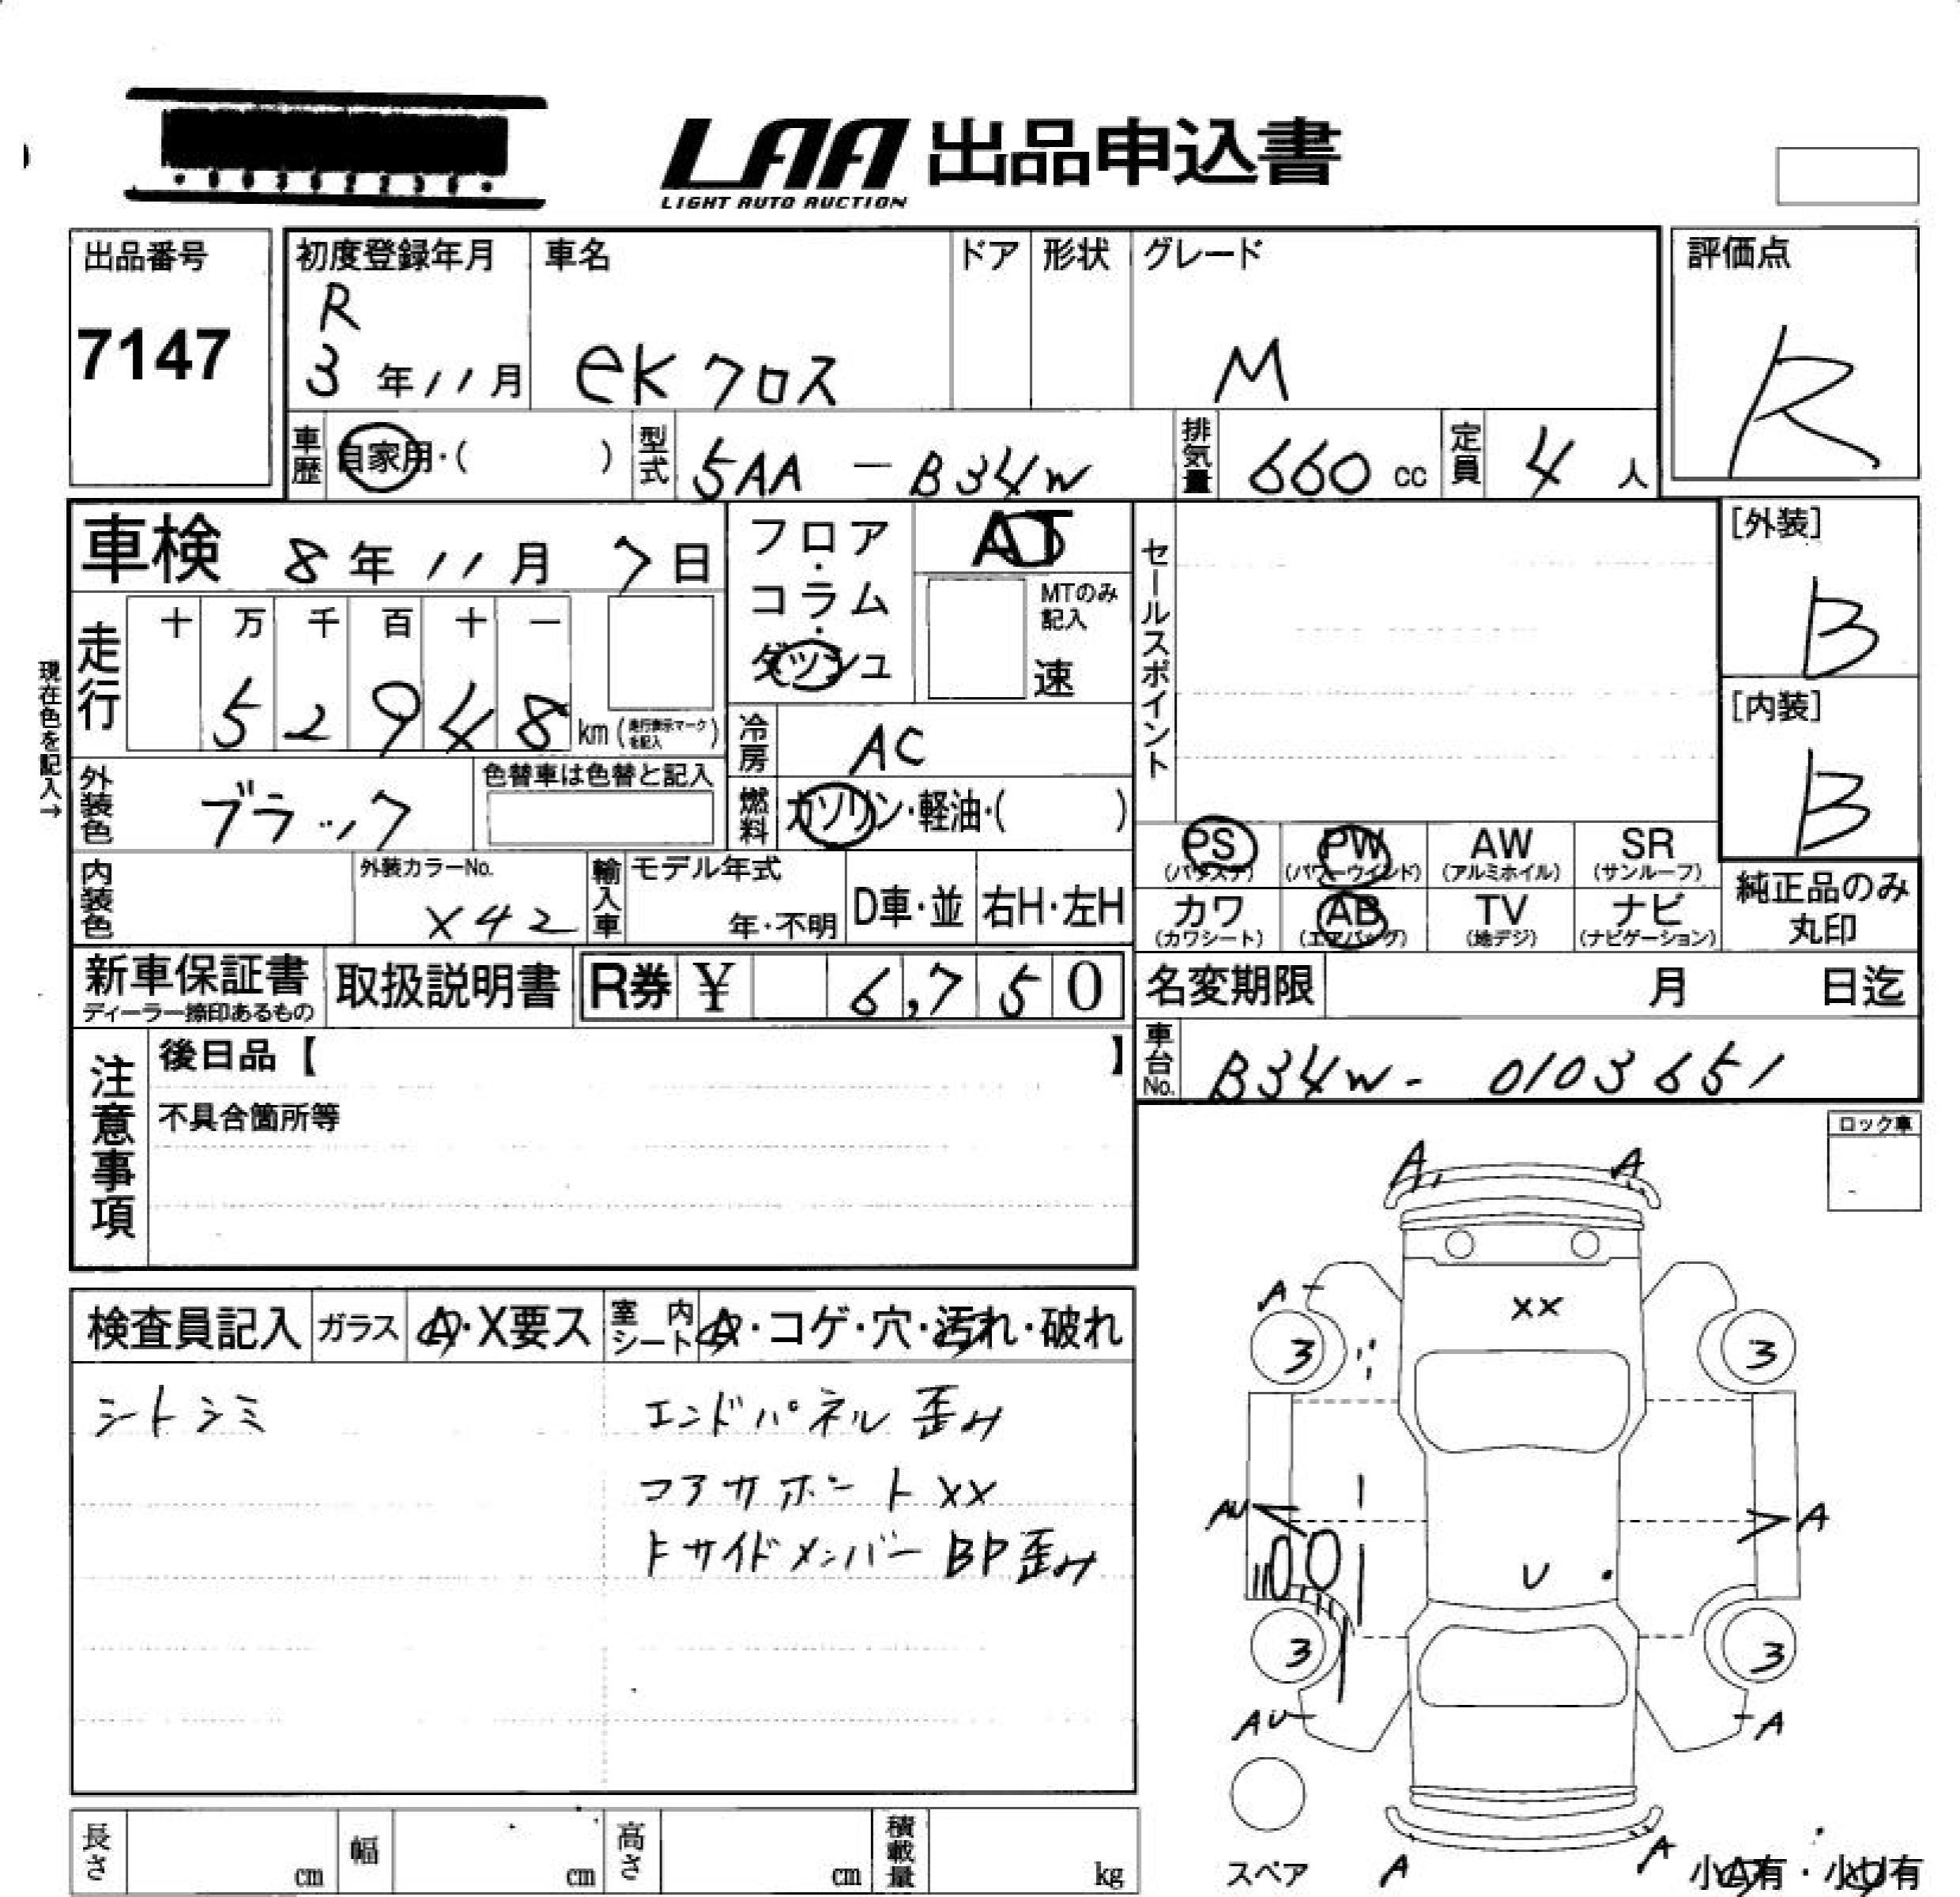 LAA 出品申込書
LIGHT AUTO AUCTION
出品番号
7147
初度登録年月
R
3 年 11 月
車名
eKクロス
ドア
形状
グレード
M
評価点
R
車歴
自家用・( )
型式
5AA - B34W
排気量
660 cc
定員
4 人
車検 8 年 11 月 7 日
現在色を記入→
走行
十 万 千 百 十 一
5 2 9 4 8 km (走行表示マークを記入)
フロア・コラム・ダッシュ
AT
MTのみ記入
速
セールスポイント
[外装]
B
[内装]
B
冷房
AC
外装色
ブラック
色替車は色替と記入
燃料
ガソリン・軽油・( )
内装色
外装カラーNo.
X42
輸入車
モデル年式
年・不明
D車・並
右H・左H
PS
(パワステ)
PW
(パワーウインド)
AW
(アルミホイル)
SR
(サンルーフ)
カワ
(カワシート)
AB
(エアバッグ)
TV
(地デジ)
ナビ
(ナビゲーション)
純正品のみ
丸印
新車保証書
ディーラー捺印あるもの
取扱説明書
R券 ¥ 6,750
名変期限 月 日迄
注意事項
後日品【 】
不具合箇所等
車台No.
B34W- 0103651
ロック車
検査員記入
ガラス
A・X要ス
室内シート
A・コゲ・穴・汚れ・破れ
シートシミ
エンドパネル歪み
コアサポートXX
トサイドメンバーBP歪み
A A
A
XX
3 3
AU A
U
3 3
AU A
スペア
A A
小A有・小U有
長さ cm
幅 cm
高さ cm
積載量 kg